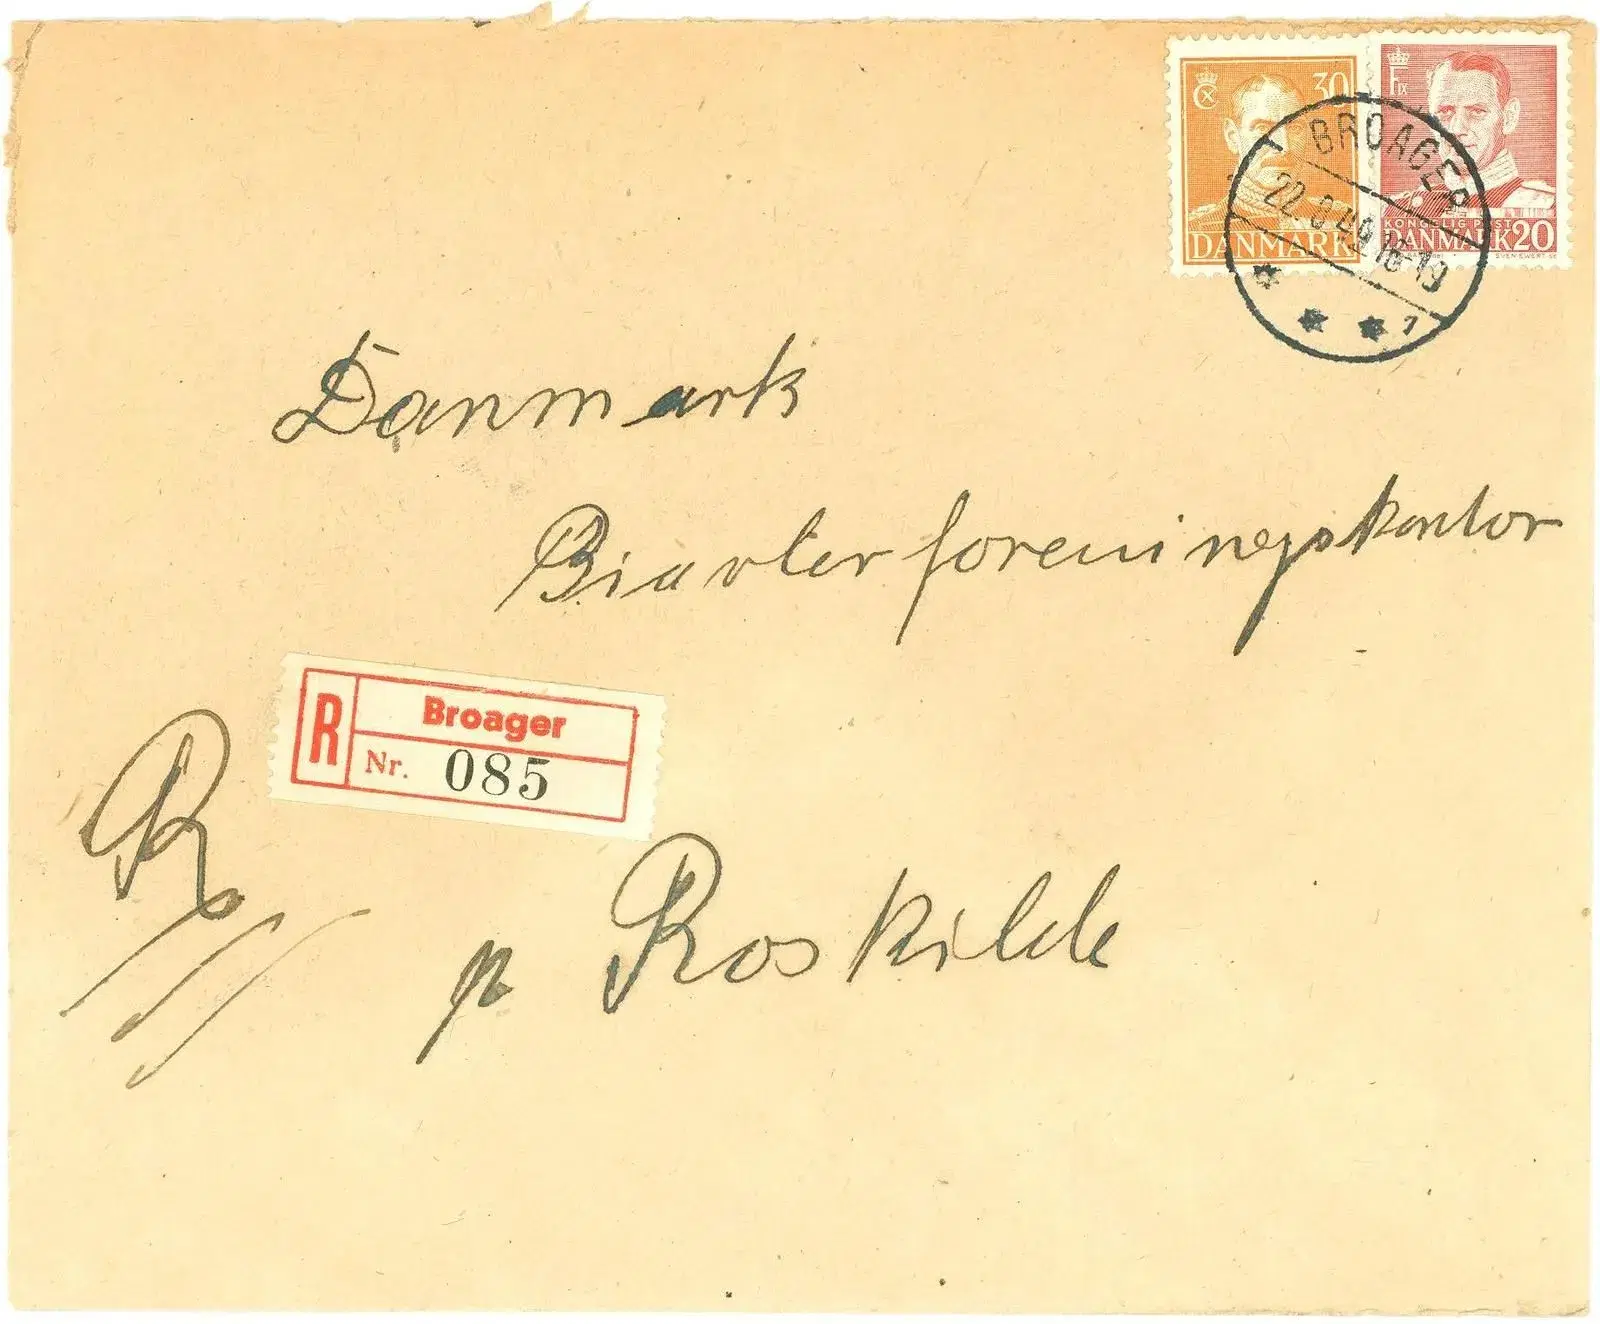 30
DANMARK
KONGELIG POST
DANMARK 20
BROAGER
16-19
1
Danmark
Biavlerforeningskontor
R
Broager
Nr. 085
R
p Roskilde